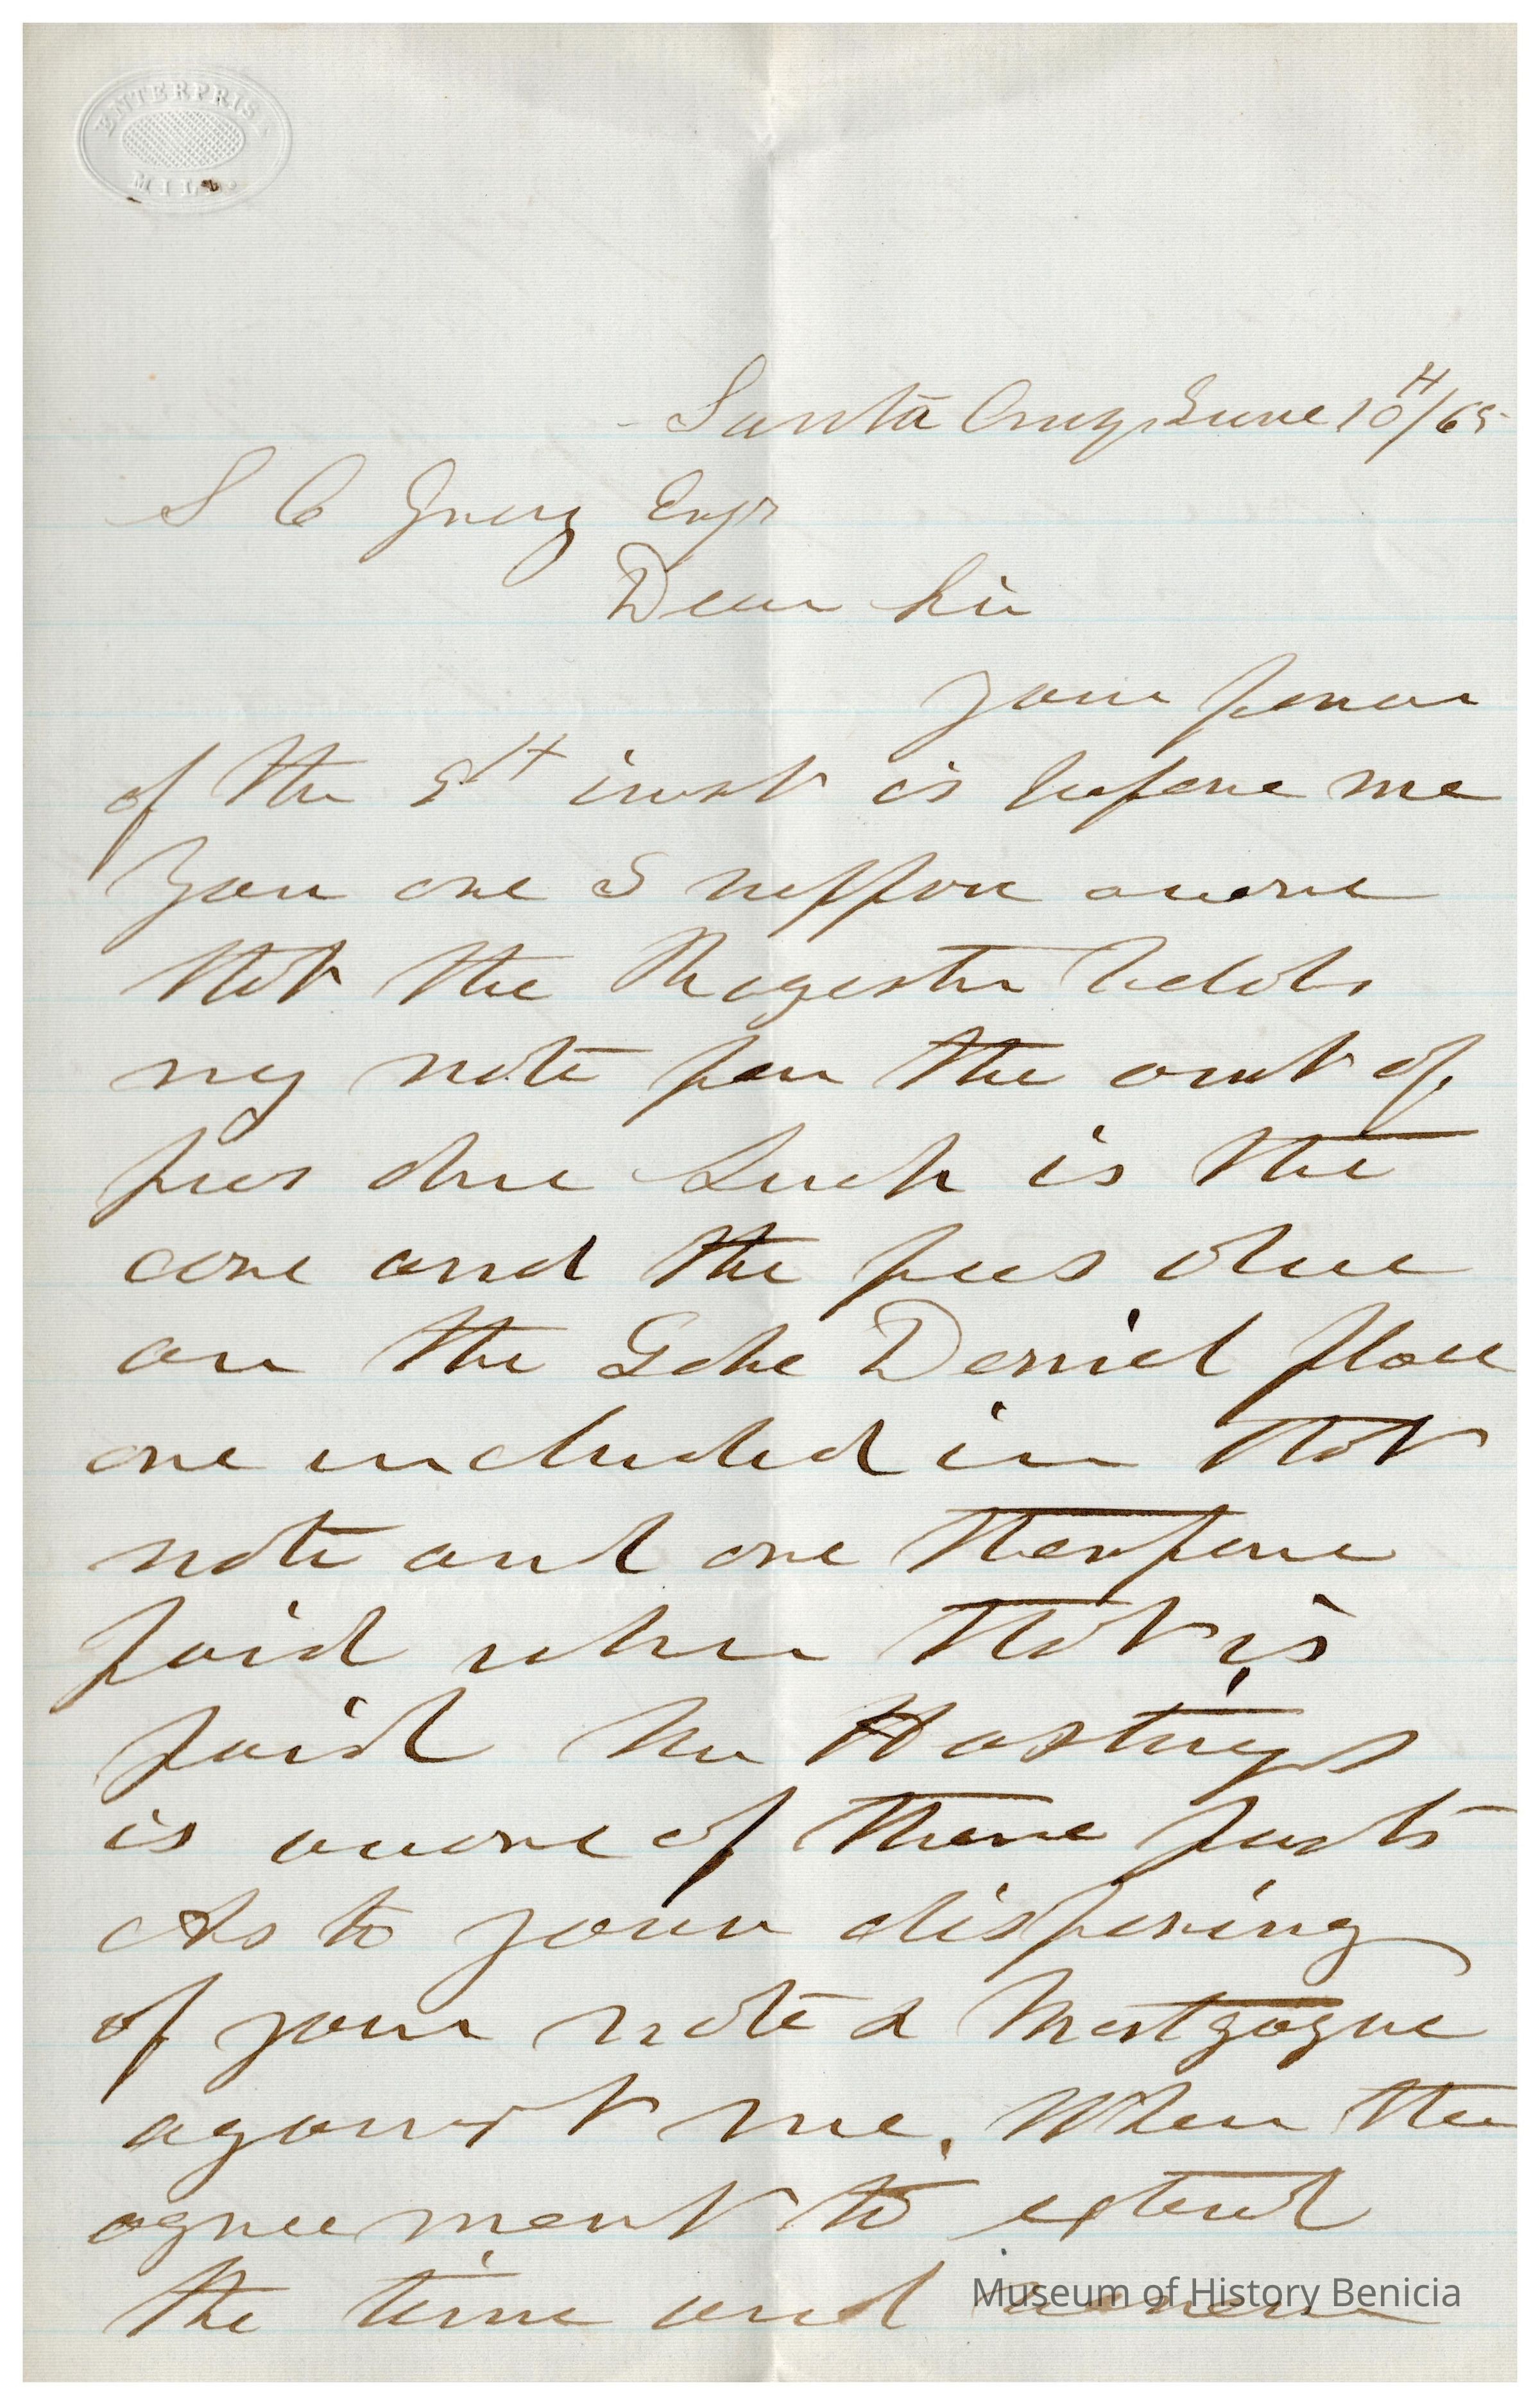 ENTERPRISE
MILL
Santa Cruz June 10th/65
S C Gray Esqr
Dear Sir
your favor
of the 5th inst is before me
you are I suppose aware
that the Register holds
my note for the amt of
fees due Such is the
case and the fees due
on the Gabe Daniel place
are included in that
note and are therefore
paid when that is
paid Mr Hastings
is aware of these facts
As to your disposing
of your note & Mortgague
against me. When the
agreement to extend
the time and
Museum of History Benicia